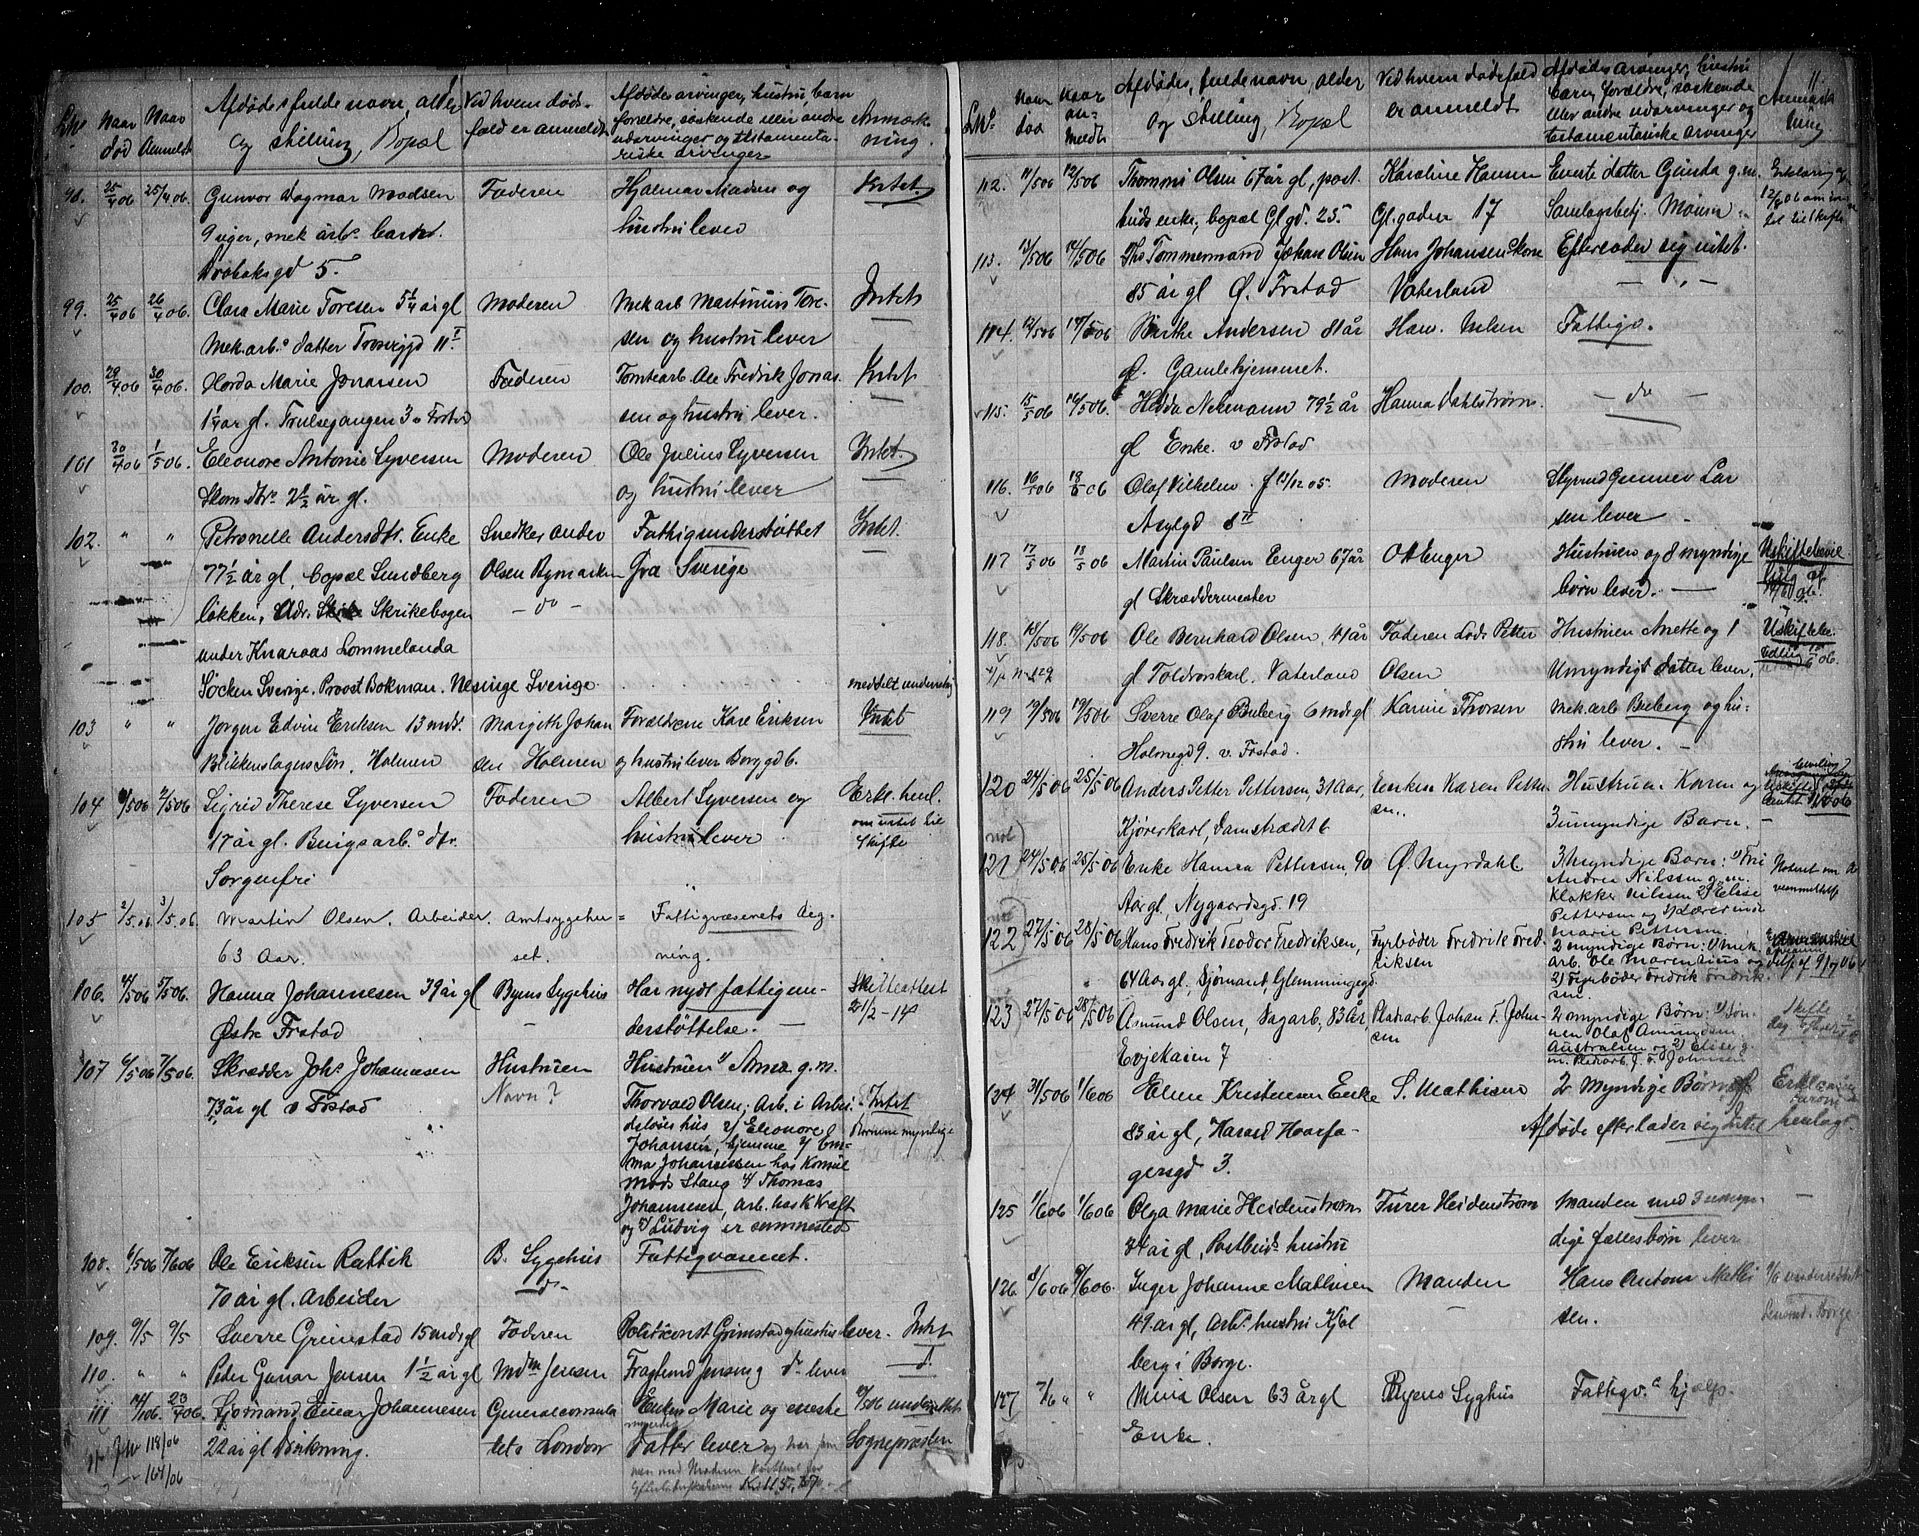 Afdødes fulde navn, alder
og stilling, Bopæl
Ved hvem døds-
fald er anmeldt
Afdødes arvinger, hustru, barn
forældre, søskende eller andre
udarvinger og testamenta-
riske arvinger
Anmærk-
ning.
Naar død
Naar Anmeldt
98. 25/4 06 25/4 06. Gunvor Dagmar Madsen Faderen Hjalmar Madsen og Intet.
9 uger, mek arbs barn. hustru lever
gd 5.
99. 25/4 06 26/4 06. Clara Marie Toresen 5 1/4 år gl Moderen Mek arb Martinius Tore- Intet
Mek.arbs datter sen og hustru lever
100. 29/4 06 30/4 06. Horda Marie Jonassen Faderen Tomtearb Ole Fredrik Jonas- Intet
1 1/4 år gl. Trulsegangen 3 v Frstad sen og hustru lever.
101 30/4 06 1/5 06. Eleonore Antonie Syversen Moderen Ole Julius Syversen Intet.
Skom dtr. 2 1/2 år gl. og hustru lever
102. " " Petronelle Andersdtr. Enke Snedker Ander Fattigunderstøttet Intet.
77 1/2 år gl bopæl Sundberg Olsen Bymarken fra Sverige
løkken, Adr. Skrikebogen - do -
under Knaraas Lommelanda
Socken Sverige. Proost Bokman. Nesinge Sverige. meddelt
103 " " Jørgen Edvin Eriksen 13 mds. Margith Johan Forældrene Kare Eriksen Intet
Blikkenslagers Søn, Holmen sen Holmen og hustru lever Borggd 6.
104 1/5 06 2/5 06. Sigrid Therese Syversen Faderen Albert Syversen og Erkl. henl.
17 år gl. Brugsarb. dtr. hustru lever om intet til
Sorgenfri skifte
105 2/5. 06 3/5. 06. Martin Olsen. Arbeider. Amtsygehu = Fattigvæsenets Reg-
63 Aar. set. ning.
106. 4/5 06 5/5 06. Hanna Johannesen 39 år gl Byens Sygehus Har nydt fattigun- Skifteattest
Østre Frstad - derstøttelse. - 21/2 - 14
107 6/5 06 7/5 06. Skrædder Johs Johannesen Hustruen Hustruen 1/ Anna g.m.
73 år gl v Frstad Navn? Thorvald Olsen, Arb. i Arbei- Intet
dsløses hus 2/ Eleonore Børnene myndige
Johansen, hjemme 3/ Em-
ma Johannessen hos Konsul
Mads Stang 4/ Thomas
Johannesen, Arb. hos K. Kraft
og 5/ Ludvig er sømmested
108. 6/5 06 7/6 06 Ole Eriksen Rattik B. Sygehus Fattigvæsenet.
70 år gl. Arbeider
109. 9/5 9/5 Sverre Grimstad 15 mds gl Faderen Politikonst Grimstad og hustru lever. Intet
110. " " Peder Gunar Jensen 1 1/2 år gl Mdm Jensen lever d.
111 14/1 06. 23/4 06. Sjømand Einar Johannesen Generalconsula Enken Marie og eneste 10/5 06 underrettet
118/06 22 år gl Drukning. tets London Datter lever og har Sognepresten
164/06 Moderen Kr. 115,
LNo. Naar død Naar an-meldt
Afdødes, fulde navn, alder
og stilling, Bopæl
Ved hvem dødsfald
er anmeldt
Afdødes arvinger, hustru
barn, forældre, søskende
eller andre udarvinger og
testamentariske arvinger
Anmærk
ning
11
112. 11/5 06 12/5 06 Thommi Olsen 67 år gl, post. Karoline Hansen Eneste datter Gunda g.m. Erklæring af
buds enke, bopæl Gl.gd. 25. Gl.gaden 17 Samlagsbetj. 12/5 06 om
113. 13/5 06 14/5 06 Ths Tømmermand Johan Olsen Hans Johansen Efterlader sig intet.
85 år gl Ø. Frstad Vaterland - " -
114. 12/5 06 14/5 06 Birthe Andersen 81 år Fattigv.
gl. Gamlehjemmet.
115. 15/5 06 16/5 06. Hedda Nekmann 79 1/2 år Hanna Dahlstrøm. - do -
gl Enke. v Frstad
116. 16/5 06 18/5 06 Olaf Vilhelm. f 13/12 05. Moderen Styrmd Gunner Lar
Asylgd 8 II sen lever -
117 17/5 06 18/5 06 Martin Paulsen Enger 67 år Ott Enger Hustruen og 8 myndige Uskiftebevil-
gl Skræddermester børn lever. -
118. 18/5 06 19/5 06 Ole Bernhard Olsen, 41 år Faderen Lods Petter Hustruen Anette og 1 Uskiftebe.
gl Toldroskarl. Vaterland Olsen Umyndigt datter lever.
119 19/5 06 19/5 06 Sverre Olaf Buberg 6 mds gl Karine Thorsen Mek arb Buberg og hu-
Holmegd 9. v. Frstad. stru lever. -
120 24/5 06 25/5 06 Anders Petter Pettersen, 31 Aar, Enken Karen Petter Hustruen Karen og
Kjørerkarl, Damstrædet 6 sen. 3 umyndige Barn.
121 24/5 06 25/5 06 Enke Hanna Pettersen, 90 Ø. Myrdahl 3 myndige Barn: 1/ Fru
Aar gl, Nygaardsgd. 19 Andrea Nilssen g.m.
Klokker Nilssen 2) Elise
Pettersen og 3) Lærerinde
Marie Pettersen.
122 27/5 06 28/5 06 Hans Fredrik Teodor Fredriksen, Fyrbøder Fredrik Fred- 2 myndige Børn: 1) Mek
64 Aar gl, Sjømand, Glemmingegd riksen arb. Ole Marenthius og
2) Fyrbøder Fredrik Fredrik-
sen.
123 27/5 06 28/5 06 Amund Olsen, Dagarb, 83 År, Pladsarb. Johan F. John- 2 myndige Børn: 1) Søn- Skifte
Evjekaien 7 sen nen Olaf Amundsen
Australien og 2) Elise g.
m. Pladsarb. J. F. Johnsen
124 31/5 06 1/6 06 Elen Kristensen Enke S. Mathisen 2 Myndige Børn Erklæring
83 år gl, Harald Haarfa- Afdøde efterlader sig Intet henlagt.
gersgd 3.
125 1/6 06 1/6 06 Olga Marie Heidenstrøm Furer Heidenstrøm Manden med 3 umyn- -
34 år gl, Postbuds hustru dige fællesbørn lever
126. 6/6 06 9/6 06. Inger Johanne Mathisen Manden Hans Anton Mathi 9/6 underrettet
49 år gl, Arbs hustru Kjøl - sen. Lensmd. i Borge
berg i Borge.
127 7/6 " " Mina Olsen 63 år gl Byens Syghus Fattigv. hjælp.
Enke.